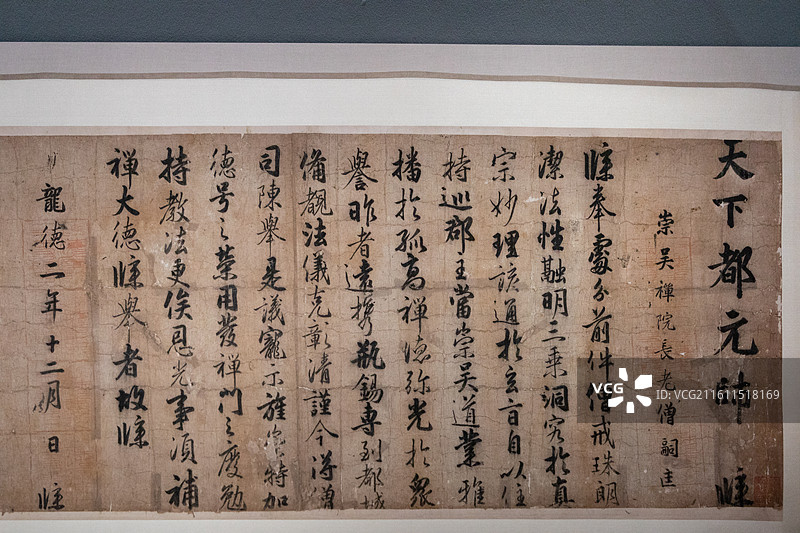 天下都元帥 牒
崇吳禪院長老僧嗣匡
牒奉處分前件僧戒珠朗
潔法性融明三乘洞究於真
宗妙理該通於玄旨自以住
持巡郡主當崇吳道業雅
播於孤高禪德弥光於衆
譽昨者遠攜瓶錫專到都城
備覩法儀克彰清謹今得僧
司陳舉是議寵示旌特加
德号之榮用發禪門之慶勉
持教法更俟恩光事須補
禪大德牒舉者故牒
龍德二年十二月 日 牒
VCG
VCG211611518169
VCG
ID: VCG211611518169